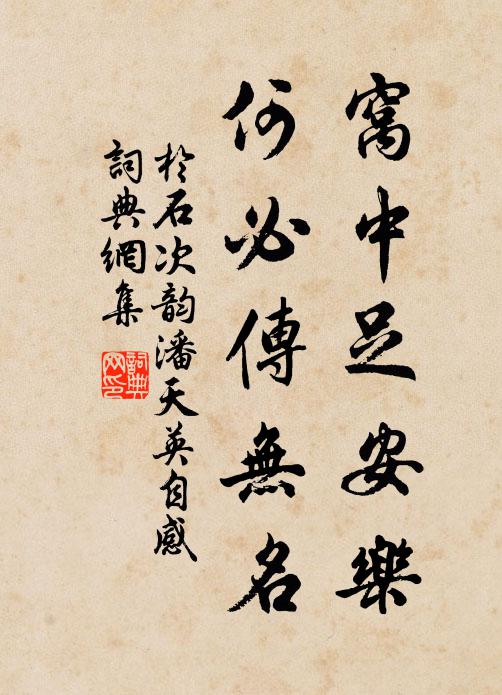 窩中足安樂
何必傳無名
於石次韵潘天英自感
詞典網集
詞典
网印